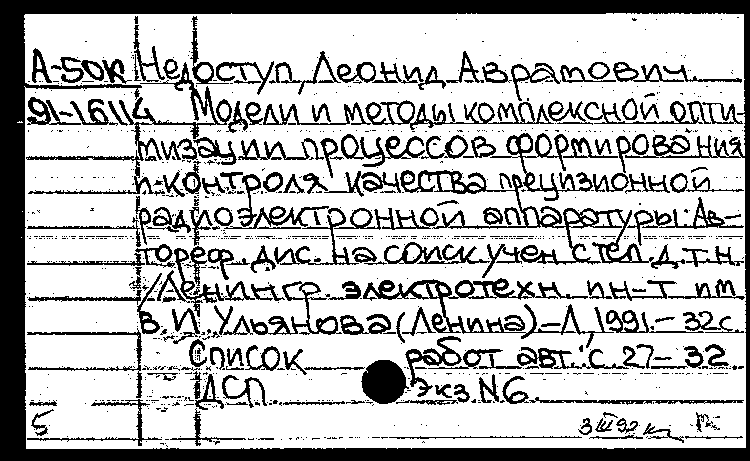 А-50к Недоступ, Леонид Аврамович.
91-16114 Модели и методы комплексной опти-
мизации процессов формирования
и контроля качества прецизионной
радиоэлектронной аппаратуры: Ав-
тореф. дис. на соиск. учен. степ. д.т.н.
/Ленингр. электротехн. ин-т им.
В.И. Ульянова (Ленина).–Л., 1991.– 32с
Список работ авт.: с. 27– 32.
ДСП. экз. N6.
5 3 III 92